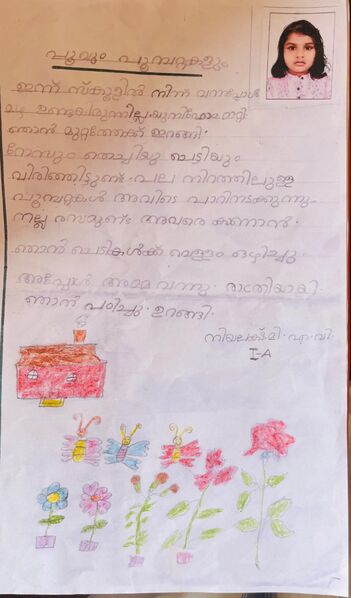 പൂവും പൂമ്പാറ്റകളും
ഇന്ന് സ്കൂളിൽ നിന്ന് വന്നപ്പോൾ
മഴ ഉണ്ടായിരുന്നില്ല. യൂണിഫോം മാറ്റി
ഞാൻ മുറ്റത്തേക്ക് ഇറങ്ങി.
തെച്ചിയു ചെടിയും
വിരിഞ്ഞിട്ടുണ്ട്. പല നിറത്തിലുള്ള
പൂമ്പറ്റകൾ അവിടെ പാറിനടക്കുന്നു.
നല്ല രസമുണ്ട് അവരെ കാണാൻ.
ഞാൻ ചെടികൾക്ക് വെള്ളം ഒഴിച്ചു.
അപ്പോൾ അമ്മ വന്നു. രാത്രിയായി.
ഞാൻ പഠിച്ചു. ഉറങ്ങി.
നിഖലക്ഷ്മി. എ. വി.
I-A